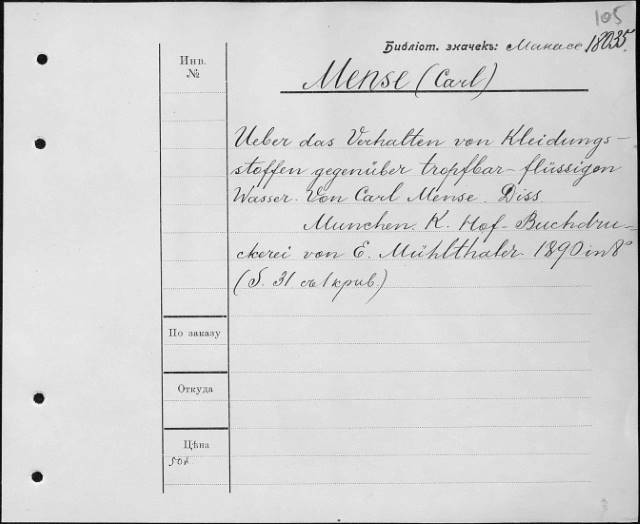 105
Библіот. значекъ: Манасе 18035.
Инв.
№
Mense (Carl)
Ueber das Verhalten von Kleidungs-
stoffen gegenüber tropfbar-flüssigen
Wasser. Von Carl Mense. Diss
Munchen. K. Hof-Buchdru-
ckerei von E. Mühlthaler. 1890 in 8°
(S. 31 съ 1 крив.)
По заказу
Откуда
Цѣна